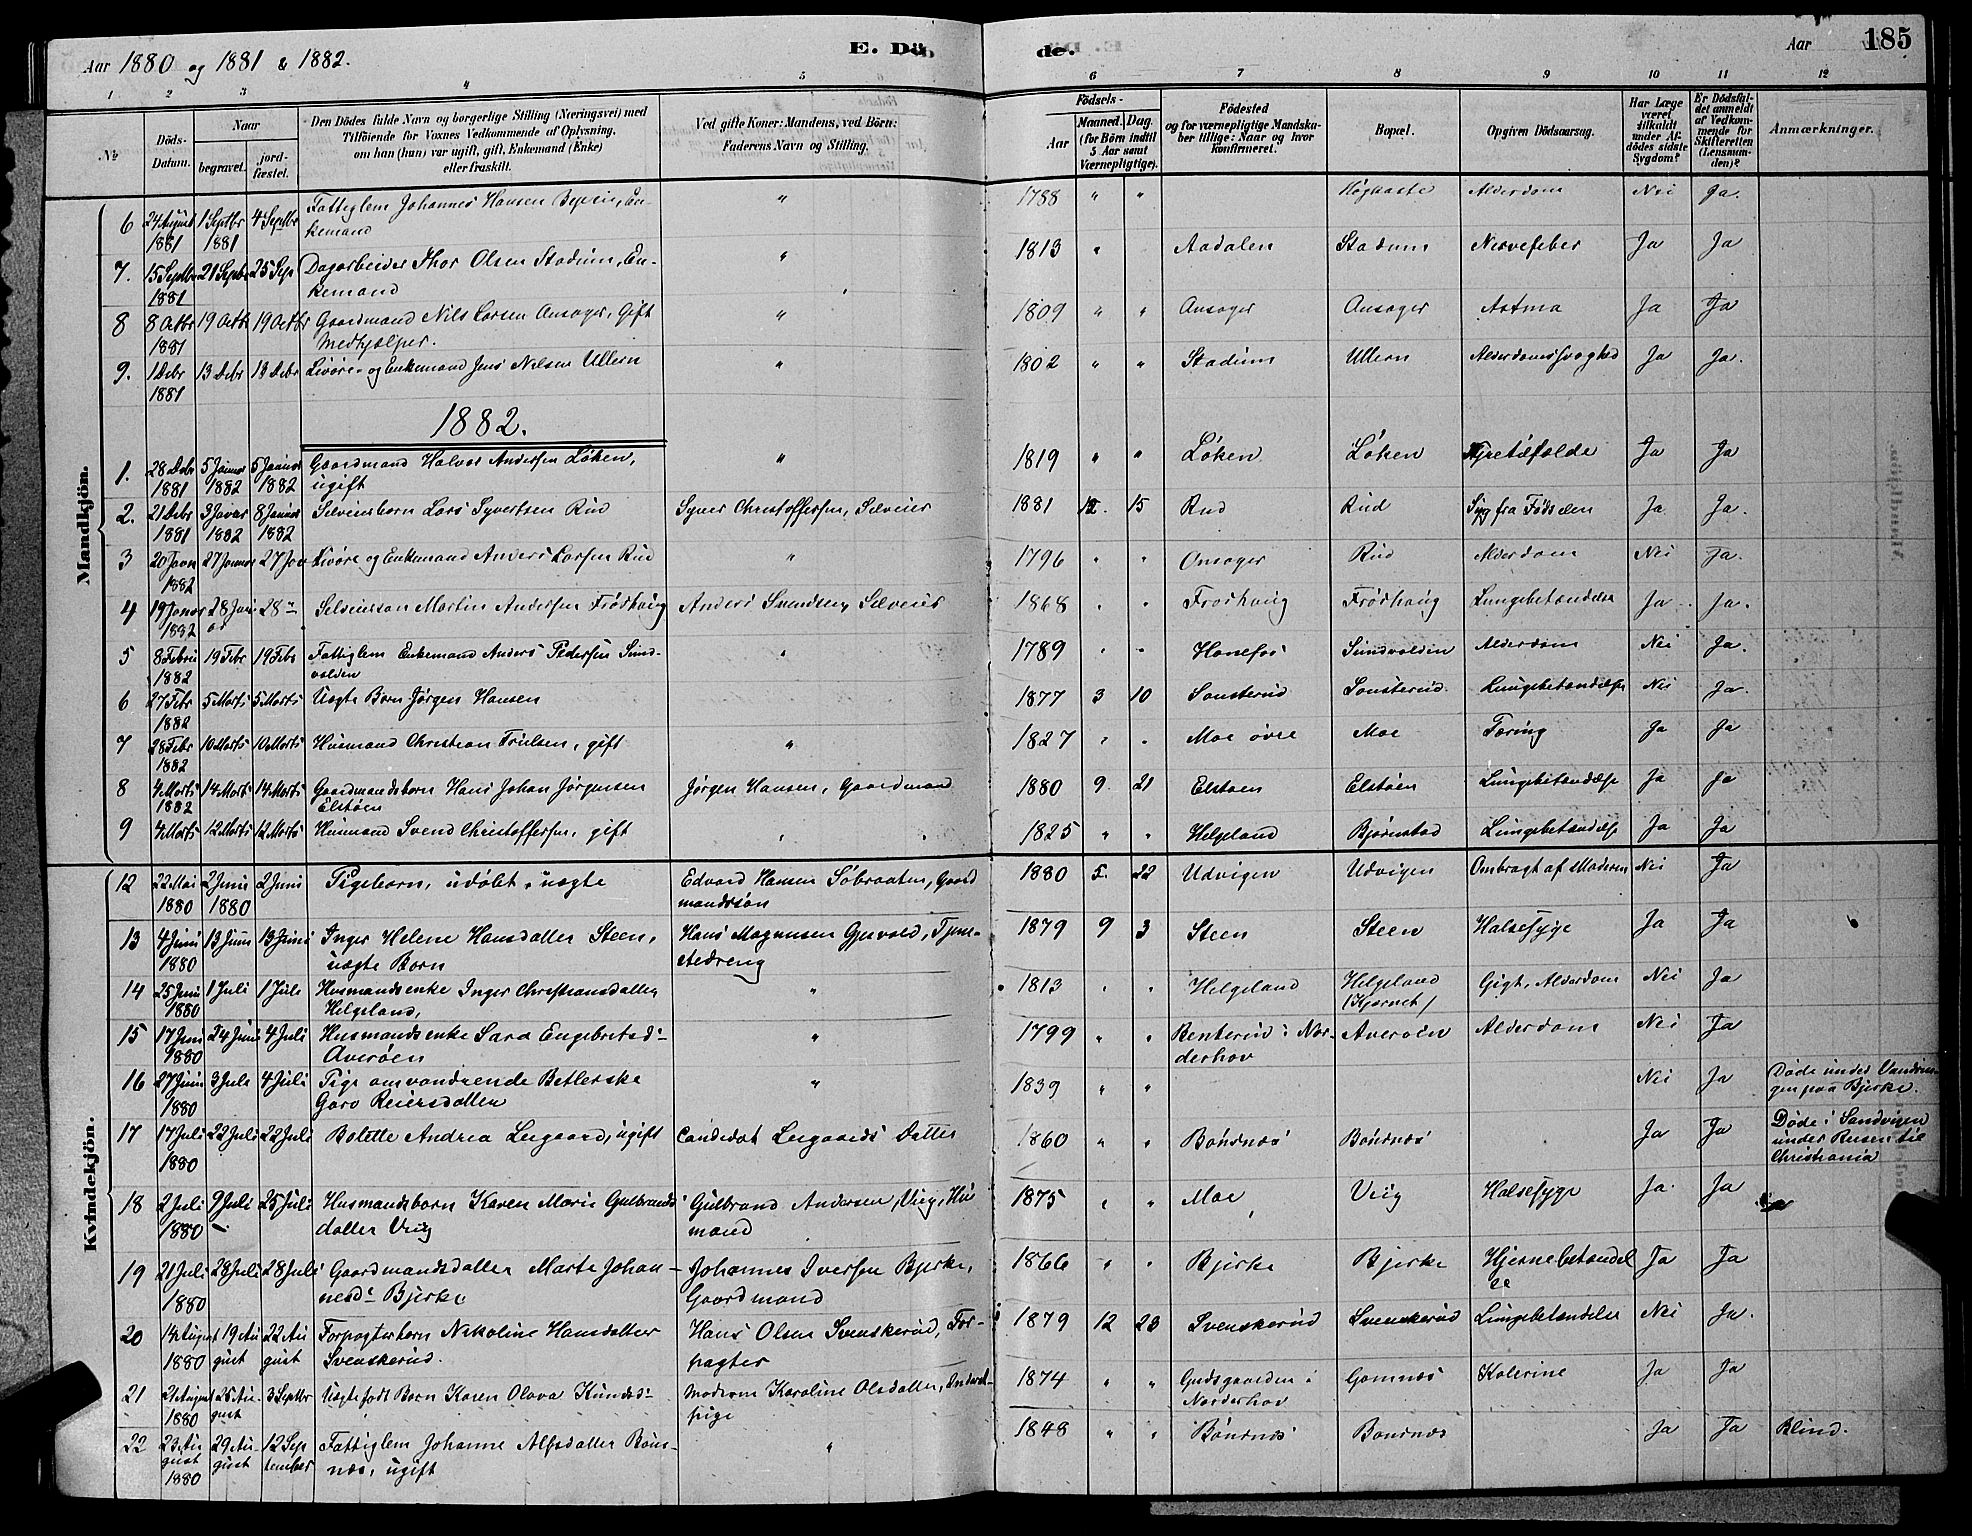 Aar 1880 og 1881 & 1882.
E. Döde.
Aar 185
1 2 3 4 5 6 7 8 9 10 11 12
No
Döds-Datum.
Naar
begravet.
jordfæstet.
Den Dödes fulde Navn og borgerlige Stilling (Næringsvei) med
Tilföiende for Voxnes Vedkommende af Oplysning,
om han (hun) var ugift, gift, Enkemand (Enke)
eller fraskilt.
Ved gifte Koner: Mandens, ved Börn:
Faderens Navn og Stilling.
Födsels-
Aar
Maaned. Dag.
(for Börn indtil
5 Aar samt
Værnepligtige).
Födested
og for værnepligtige Mandska-
ber tillige: Naar og hvor
konfirmeret.
Bopæl.
Opgiven Dödsaarsag.
Har Læge
været
tilkaldt
under Af-
dödes sidste
Sygdom?
Er Dödsfal-
det anmeldt
af Vedkom-
mende for
Skifteretten
(Lensman-
den)?
Anmærkninger.
Mandkjön.
6 24 August 1881 1 Septbr 1881 4 Septbr Fattiglem Johannes Hansen En-
kemand " 1788 " " Alderdom Nei Ja.
7. 15 Septbr 1881 21 Septbr 25 Sep Dagarbeider Thor Olsen Stadum, En-
kemand " 1813 " Aadalen Stadum Nervefeber Ja Ja
8 8 Octbr 1881 19 Octb 19 Octbr Gaardmand Nils Larsen Onsager, Gift
Medhjælper. " 1809 " " Onsager Onsager Astma Ja Ja
9. 1 Debr 1881 13 Debr 18 Debr Livöre- og Enkemand Jens Nilsen Ullern " 1802 " " Stadum Ullern Alderdomssvaghed Ja Ja.
1882.
1. 28 Debr 1881 5 Januar 1882 5 Januar 1882 Gaardmand Halvor Andersen Løken,
ugift " 1819 " " Løken Løken Ja Ja
2. 21 Debr 1881 3 Januar 1882 8 Januar 1882 Selveierbarn Lars Syvertsen Rud Syver Christoffersen, Selveier 1881 12. 15 Rud Rud Syg fra Fødselen Ja Ja.
3 20 Janr 1882 27 Januar 27 Jan Livöre og Enkemand Anders Larsen Rud " 1796 " " Onsager Rud Alderdom Nei Ja.
4 19 Januar 1882 28 Januar 28 " Selveiersøn Martin Andersen Frødhaug Anders Svendsen, Selveier 1868 " " Frødhaug Frødhaug Lungebetændelse Ja Ja.
5 8 Febru 1882 19 Febr 19 Febr Fattiglem Enkemand Anders Pedersen Sund-
volden " 1789 " " Hønefos Sundvolden Alderdom Nei Ja.
6 27 Febr 1882 5 Marts 5 Marts Uægte Barn Jørgen Hansen 1877 3 10 Sønsterud Sønsterud Lungebetændelse Nei Ja.
7 28 Febr 1882 10 Marts 10 Marts Husmand Christian Truelsen, gift " 1827 " " Moe øvre Moe Tæring Ja Ja
8 4 Marts 1882 14 Marts 14 Marts Gaardmandsbarn Hans Johan Jørgensen
Elstøen Jørgen Hansen, Gaardmand 1880 9. 21 Elstøen Elstøen Lungebetændelse Ja Ja
9 4 Marts 12 Marts 12 Marts Husmand Svend Christoffersen, gift " 1825 " " Helgeland Bjørnstad Lungebetændelse Ja Ja
Kvindekjön.
12 22 Mai 1880 2 Juni 1880 2 Juni Pigebarn, udøbt, uægte Edvard Hansen Søbraaten, Gaard
mandssøn 1880 5. 22 Udvigen Udvigen Ombragt af Moderen Nei Ja
13 4 Juni 1880 13 Juni 13 Juni Inger Helene Hansdatter Steen,
uægte Barn Hans Magnusen Gjesvold, Tjene-
stedreng 1879 9 3 Steen Steen Halsesyge Ja Ja
14 25 Juni 1880 1 Juli 1 Juli Husmandsenke Inger Christiansdatter
Helgeland, " 1813 " " Helgeland Helgeland
(Kjernet) Gigt, Alderdom Nei Ja
15 17 Juni 1880 24 Juni 4 Juli Husmandsenke Sara Engebretsd-
Averøen " 1799 " " Benterud i Nor-
derhov Averøen Alderdom Nei Ja
16 27 Juni 1880 3 Juli 4 Juli Pige omvandrende Betlerske
Goro Reiersdatter " 1839 " " Nei Ja Døde under Vandrin-
gen paa Bjerke.
17 17 Juli 1880 22 Juli 22 Juli Bolette Andrea Leegaard, ugift Candidat Leegaards Datter 1860 " " Bønsnæs Bønsnæs Ja Ja Døde i Sandvigen
under Reisen til
Christiania
18 2 Juli 1880 9 Juli 25 Juli Husmandsbarn Karen Marie Gulbrands
datter Viig Gulbrand Andersen, Viig, Hus
mand 1875 " " Moe Viig Halsesyge Ja. Ja
19 21 Juli 1880 28 Juli 28 Juli Gaardmandsdatter Marte Johan-
nesd- Bjerke Johannes Iversen Bjerke,
Gaardmand 1866 " " Bjerke Bjerke Hjernebetændel
se Ja Ja
20 14 August 1880 19 Au
gust 22 Au
gust Forpagterbarn Nikoline Hansdatter
Svenskerud. Hans Olsen Svenskerud, For-
pagter 1879 12 23 Svenskerud Svenskerud Lungebetændelse Nei Ja.
21 21 August 1880 25 Au-
gust 3 Septbr Uægtefødt Barn Karen Olava Knudsd- Moderen Karoline Olsdatter,
pige 1874 " " Gudsgaarden i
Norderhov Gomnæs Kolerine Ja Ja
22 23 Au
gust 1880 29 Au
gust 12 Sep
tember Fattiglem Johanne Alfsdatter Bøns-
næs, ugift " 1848 " " Bønsnæs Bønsnæs Ja Ja Blind.